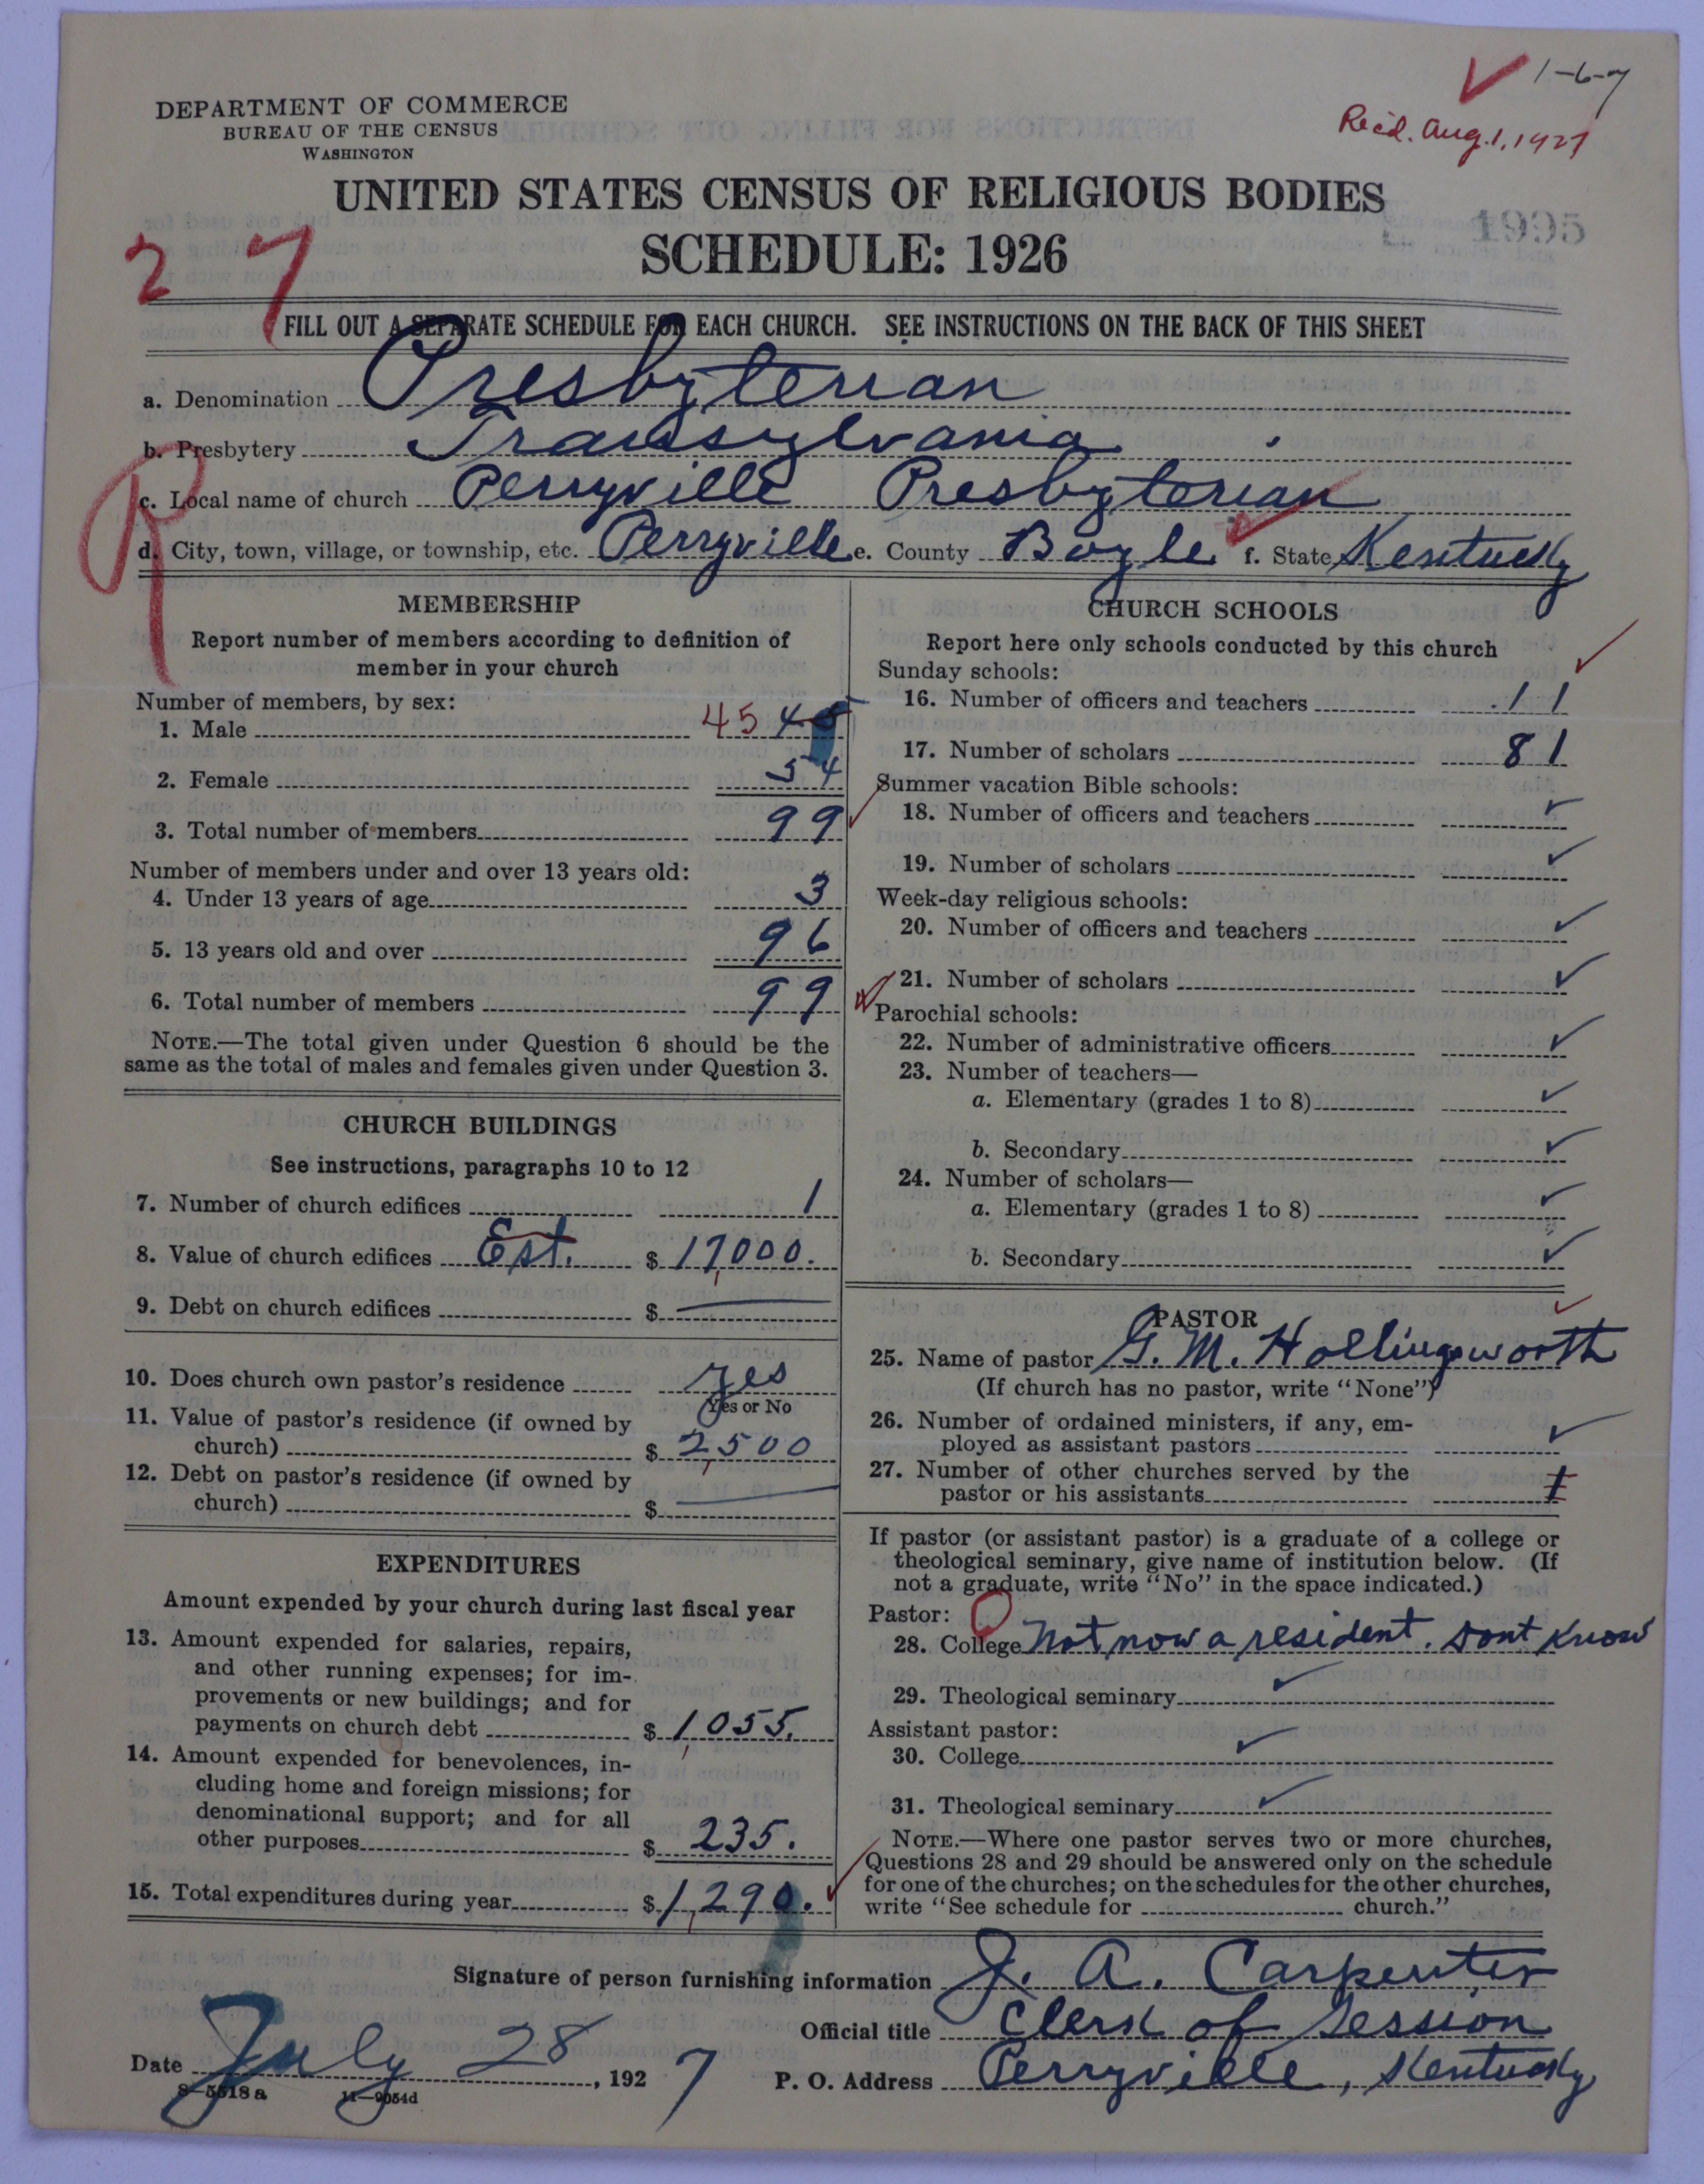 1-6-7
Rec'd. Aug. 1, 1927
DEPARTMENT OF COMMERCE
BUREAU OF THE CENSUS
WASHINGTON
UNITED STATES CENSUS OF RELIGIOUS BODIES
1995
SCHEDULE: 1926
2 7
FILL OUT A SEPARATE SCHEDULE FOR EACH CHURCH. SEE INSTRUCTIONS ON THE BACK OF THIS SHEET
a. Denomination Presbyterian
b. Presbytery Transylvania
c. Local name of church Perryville Presbyterian
d. City, town, village, or township, etc. Perryville e. County Boyle f. State Kentucky
R
MEMBERSHIP
Report number of members according to definition of
member in your church
Number of members, by sex:
1. Male 45 45
2. Female 54
3. Total number of members 99
Number of members under and over 13 years old:
4. Under 13 years of age 3
5. 13 years old and over 96
6. Total number of members 99
NOTE.—The total given under Question 6 should be the
same as the total of males and females given under Question 3.
CHURCH BUILDINGS
See instructions, paragraphs 10 to 12
7. Number of church edifices 1
8. Value of church edifices Est. $ 17,000.
9. Debt on church edifices $ —
10. Does church own pastor's residence yes
Yes or No
11. Value of pastor's residence (if owned by
church) $ 2,500
12. Debt on pastor's residence (if owned by
church) $ —
EXPENDITURES
Amount expended by your church during last fiscal year
13. Amount expended for salaries, repairs,
and other running expenses; for im-
provements or new buildings; and for
payments on church debt $ 1,055.
14. Amount expended for benevolences, in-
cluding home and foreign missions; for
denominational support; and for all
other purposes $ 235.
15. Total expenditures during year $ 1,290.
CHURCH SCHOOLS
Report here only schools conducted by this church
Sunday schools:
16. Number of officers and teachers 11
17. Number of scholars 81
Summer vacation Bible schools:
18. Number of officers and teachers ✓
19. Number of scholars ✓
Week-day religious schools:
20. Number of officers and teachers ✓
21. Number of scholars ✓
Parochial schools:
22. Number of administrative officers ✓
23. Number of teachers—
a. Elementary (grades 1 to 8) ✓
b. Secondary ✓
24. Number of scholars—
a. Elementary (grades 1 to 8) ✓
b. Secondary ✓
PASTOR
25. Name of pastor G. M. Hollingsworth
(If church has no pastor, write "None")
26. Number of ordained ministers, if any, em-
ployed as assistant pastors ✓
27. Number of other churches served by the
pastor or his assistants 1
If pastor (or assistant pastor) is a graduate of a college or
theological seminary, give name of institution below. (If
not a graduate, write "No" in the space indicated.)
Pastor:
28. College Not now a resident. Dont Know
29. Theological seminary ✓
Assistant pastor:
30. College ✓
31. Theological seminary ✓
NOTE.—Where one pastor serves two or more churches,
Questions 28 and 29 should be answered only on the schedule
for one of the churches; on the schedules for the other churches,
write "See schedule for church."
Signature of person furnishing information J. A. Carpenter
Official title Clerk of Session
Date July 28, 1927 P. O. Address Perryville, Kentucky
8—5518a 11—9054d